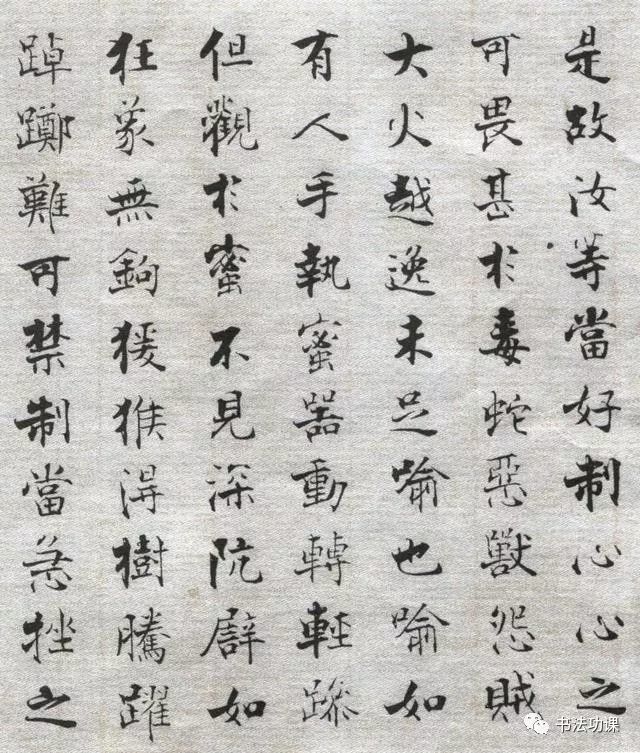 是故汝等當好制心心之
可畏甚於毒蛇惡獸怨賊
大火越逸未足喻也喻如
有人手執蜜器動轉輕躁
但觀於蜜不見深阬譬如
狂象無鉤猨猴得樹騰躍
踔躑難可禁制當急挫之
书法功课